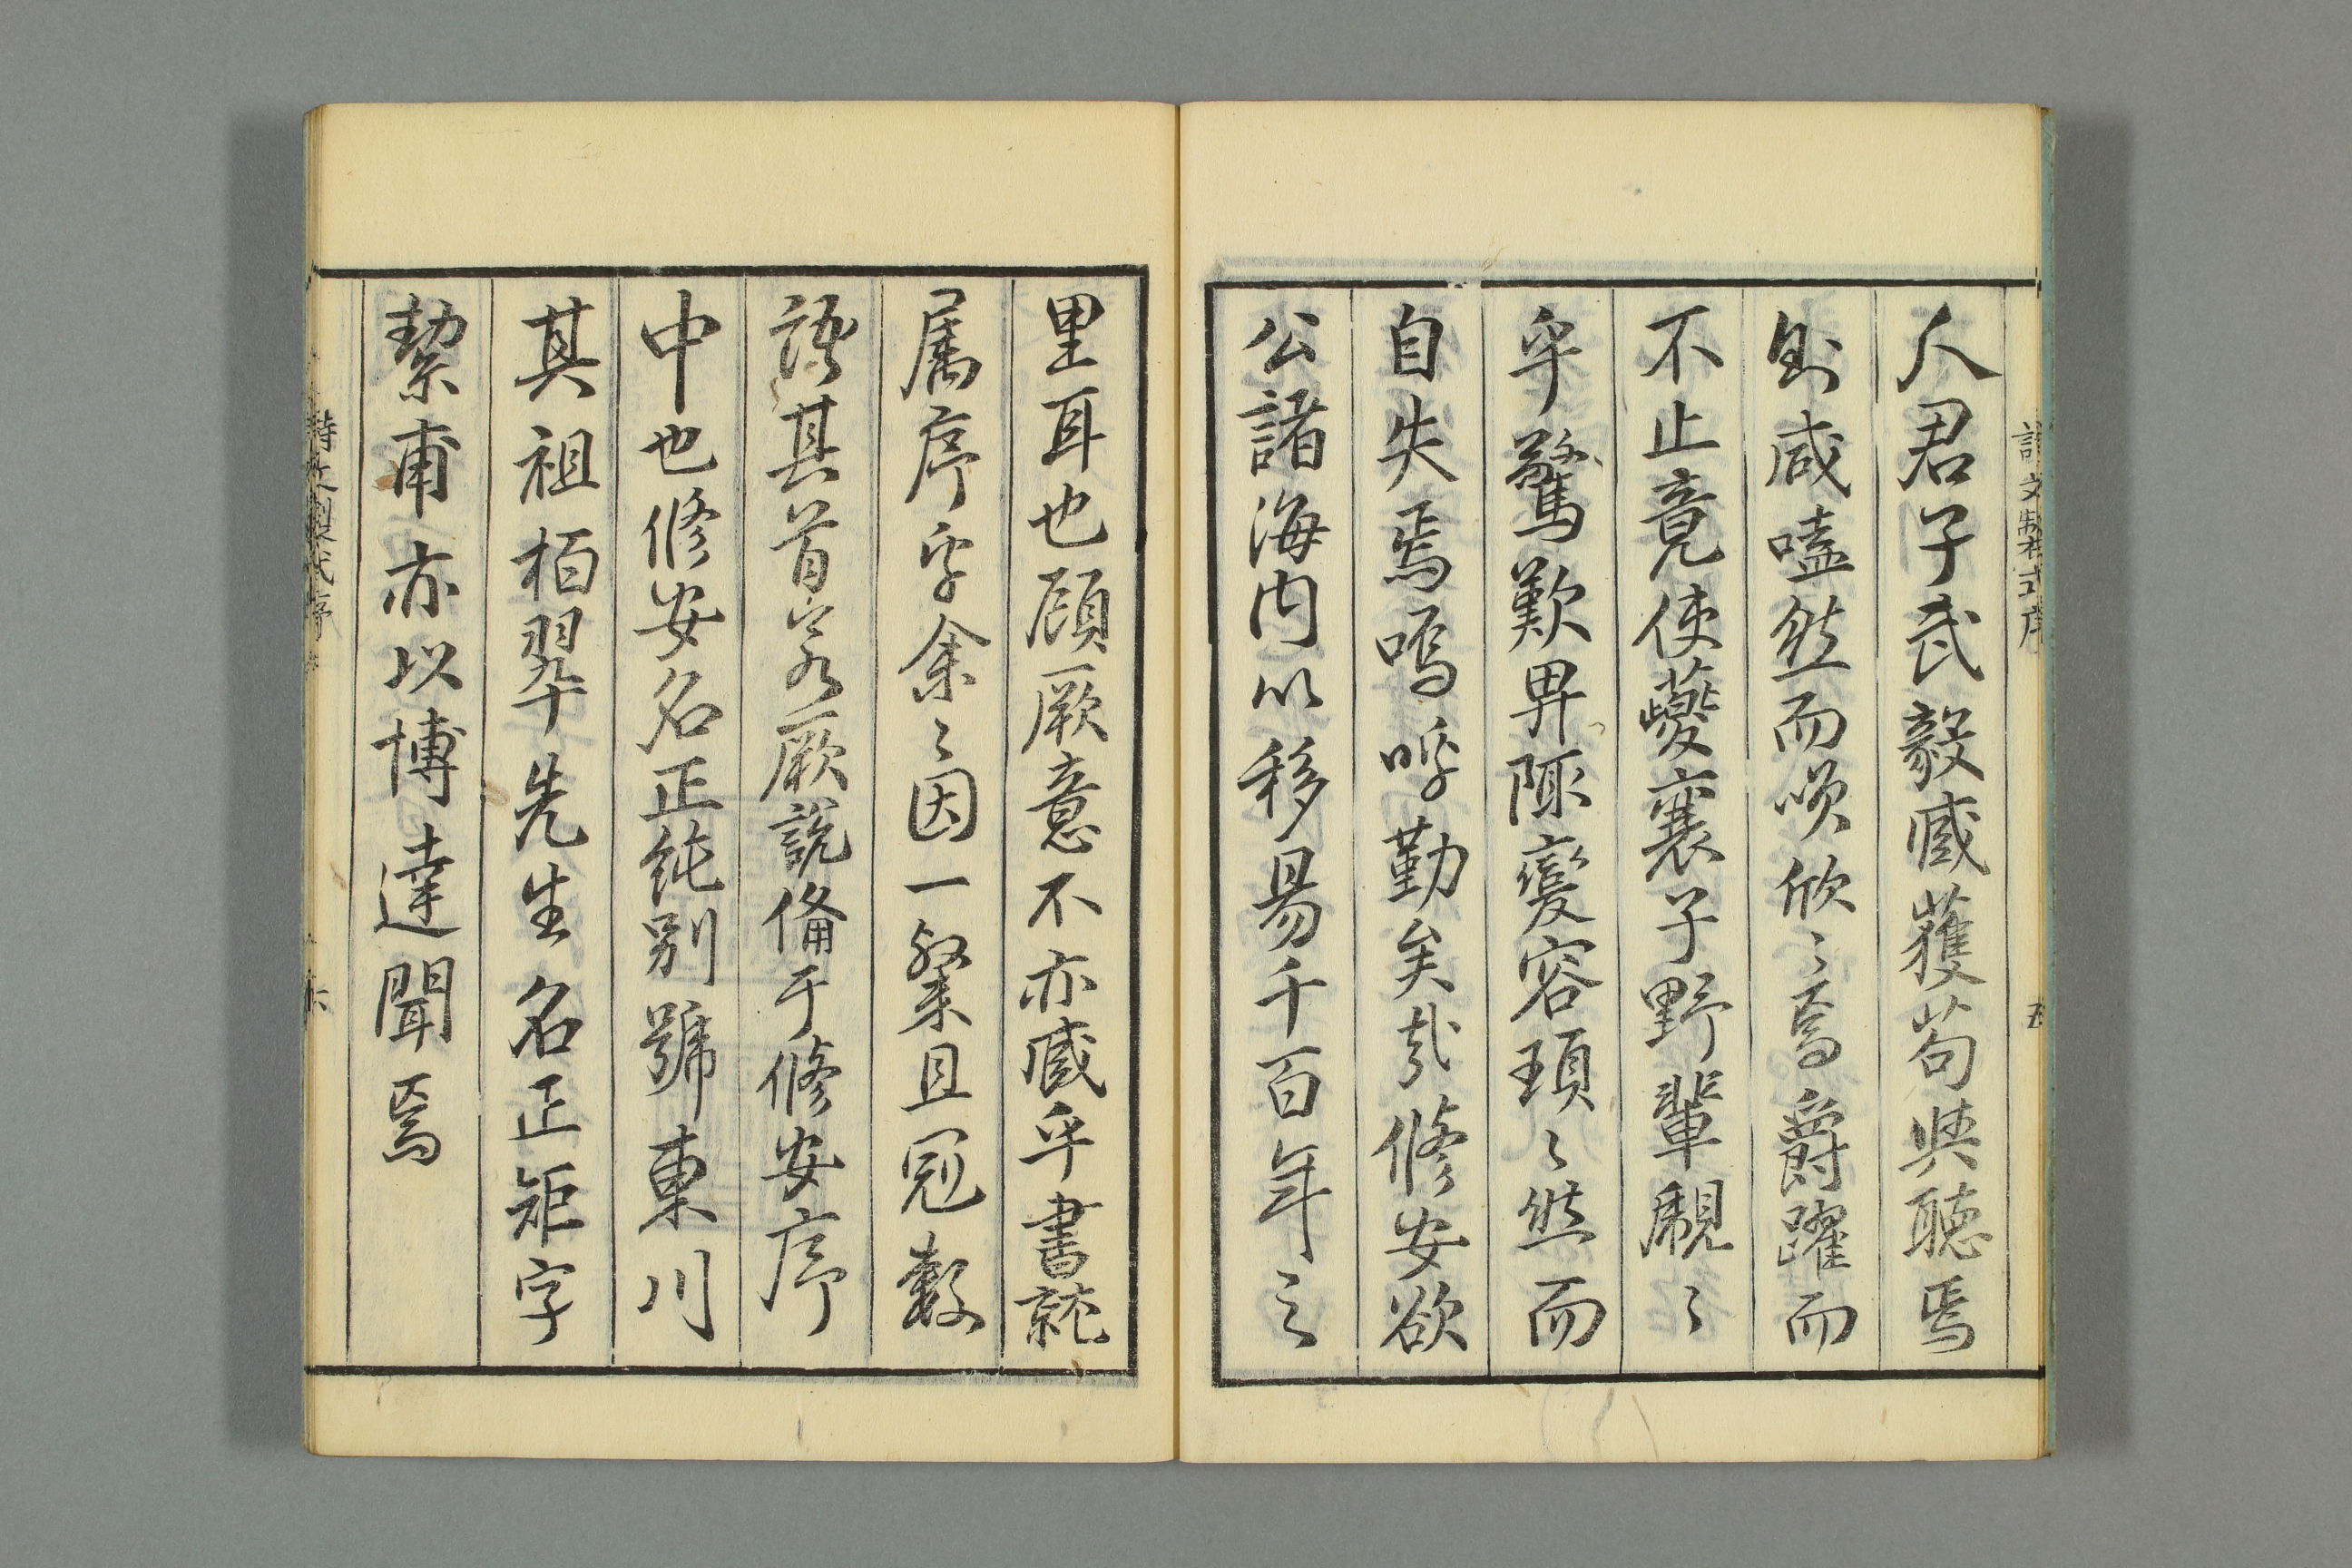 詩文製式序 五
人君子武毅臧獲苟與聽焉
則咸嗑然而喚欣〻焉爵躍而
不止竟使夔襄子野輩覥〻
乎驚歎卑陬變容頊〻然而
自失焉嗚呼勤矣哉修安欲
公諸海内以移易千百年之
里耳也顧厥意不亦臧乎書就
属序乎余〻因一繄且冠数
語其首若厥説備于修安序
中也修安名正純別號東川
其祖栢翠先生名正矩字
絜甫亦以博達聞焉
詩文製式序 六